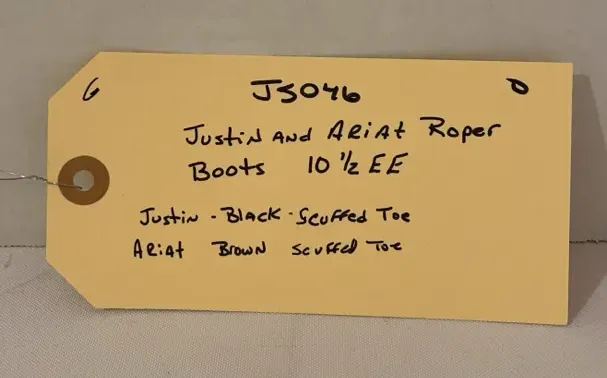 6 JS046 0
Justin and Ariat Roper
Boots 10 1/2 EE
Justin - Black - Scuffed Toe
Ariat Brown Scuffed Toe